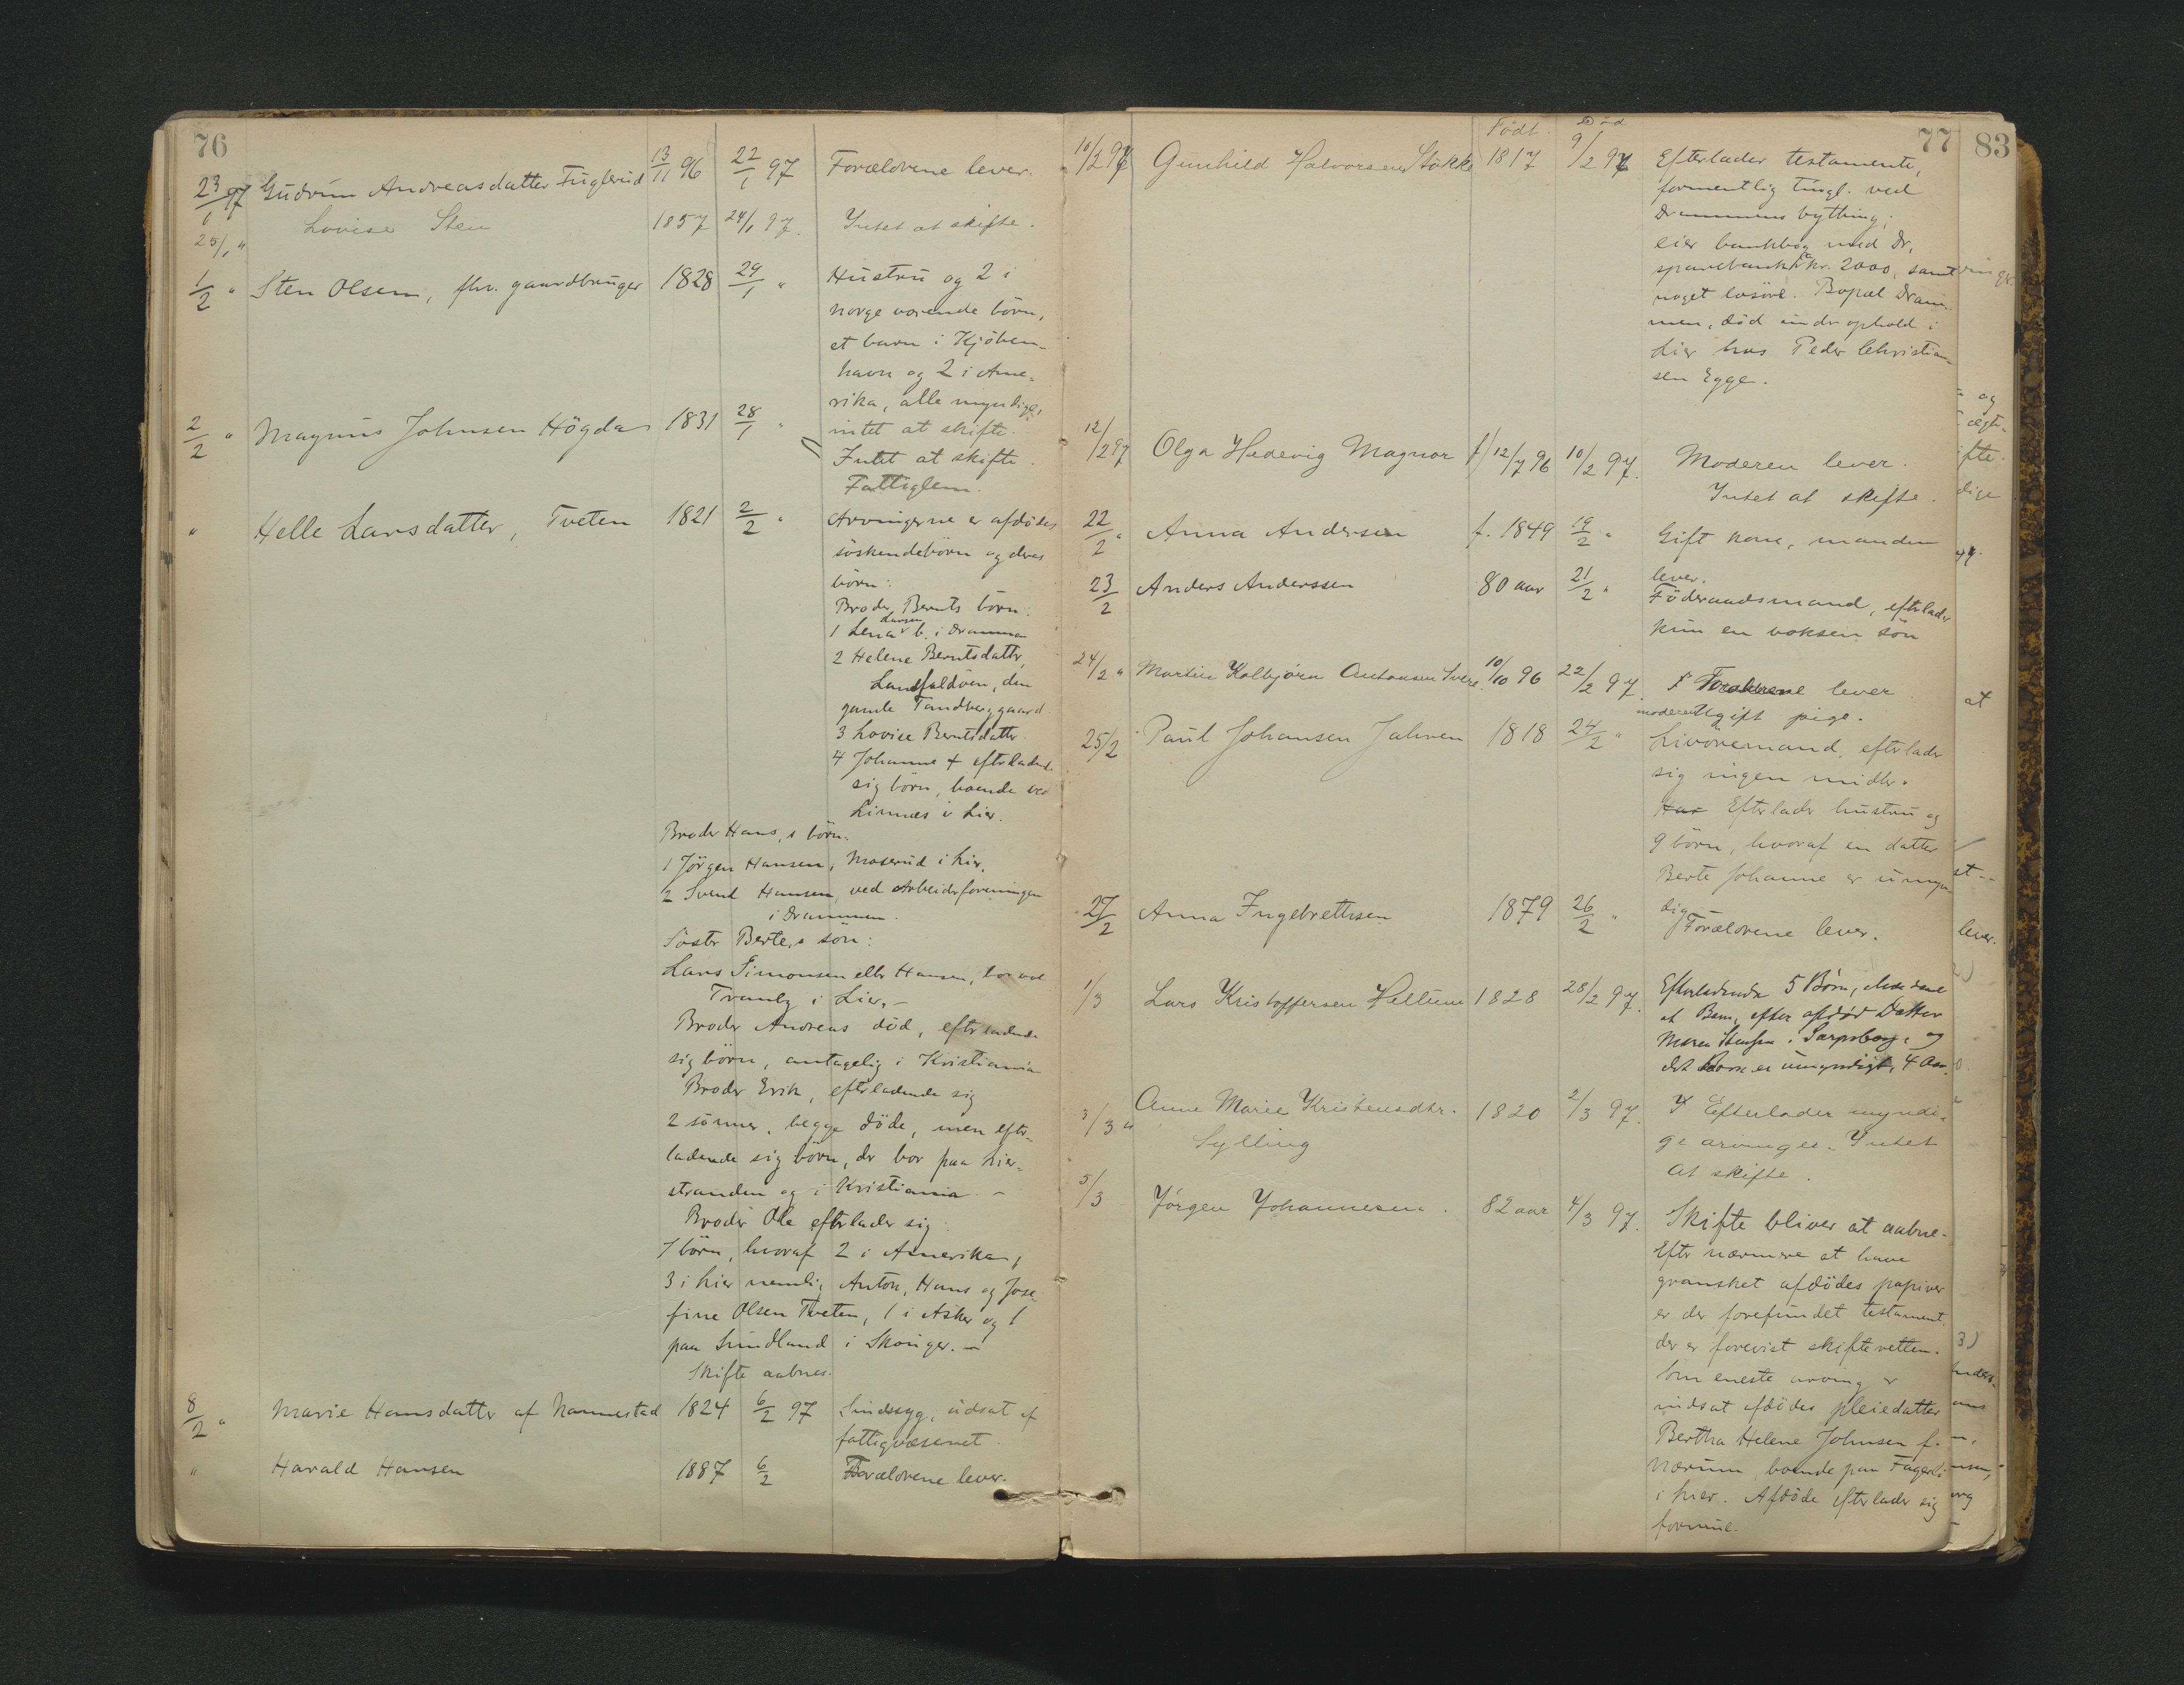 76
23/1 97 Gudrun Andreasdatter Fuglerud 13/11 96 22/1 97 Forældrene lever.
25/1 " Lovise Sten 1857 24/1 97. Intet at skifte.
1/2 " Sten Olsen, fhv. gaardbruger 1828 29/1 " Hustru og 2 i
norge værende børn,
et barn i Kjöben-
havn og 2 i Ame-
rika, alle myndige,
intet at skifte.
2/2 " Magnus Johnsen Högda 1831 28/1 "
Intet at skifte.
Fattiglem.
" Helle Larsdatter, Tveten 1821 2/2 " Arvingerne er afdödes
söskendebörn og deres
börn:
Broder, Bernts börn:
1 Lena Larsen b. i Drammen
2 Helene Berntsdatter,
Landfaldöen, den
gamle Tandberggaard
3 Lovise Berntsdatter
4 Johanne + efterladende
sig börn, boende ved
Linnæs i Lier.
Broder Hans, s börn:
1 Jörgen Hansen, Moserud i Lier,
2 Svend Hansen, ved Arbeiderforeningen
i Drammen.
Söster Berte, s sön:
Lars Simonsen eller Hansen, bor ved
Tranby i Lier. -
Broder Andreas död, efterladende
sig börn, antagelig i Kristiania
Broder Erik, efterladende sig
2 sönner, begge döde, men efter-
ladende sig börn, der bor paa Lier-
stranden og i Kristiania. -
Broder Ole efterlader sig:
7 börn, hvoraf 2 i Amerika,
3 i Lier nemlig Anton, Hans og Jose-
fine Olsen Tveten, 1 i Asker og 1
paa Sundland i Skouger. -
Skifte aabnes.
8/2 " Marie Hansdatter af Nannestad 1824 6/2 97 Sindssyg, udsat af
fattigvæsenet.
" Harald Hansen 1887 6/2 Forældrene lever.
77
Födt. Död
10/2 97 Gunhild Halvorsen Stokke 1817 9/2 97 Efterlader testamente,
formentlig tingl. ved
Drammens bything;
eier bankbog med Dr.
sparebank ca kr. 2000, samt
noget lösöre. Bopæl Dram-
men, död under ophold i
Lier hos Peder Christian-
sen Egge.
12/2 97 Olga Hedevig Magnor f/ 12/7 96 10/2 97. Moderen lever.
Intet at skifte.
22/2 " Anna Andersen f. 1849 19/2 " Gift kone, manden
lever.
23/2 Anders Anderssen 80 aar 21/2 " Föderaadsmand, efterlader
kun en voksen sön
24/2 " Martin Kolbjörn Antonsen 10/10 96 22/2 97. Forældrene lever
moderen Ugift pige.
25/2 Paul Johansen Jahren 1818 24/2 " Livöremand, efterlader
sig ingen midler.
Har Efterlader hustru og
9 börn, hvoraf en datter
Berte Johanne er umyn-
dig -
27/2 Anna Ingebrethsen 1879 26/2 " Forældrene lever.
1/3 Lars Kristoffersen Heltum 1828 28/2 97. Efterladende 5 Børn,
et Barn, efter afdød Datter
Maren i Sarpsborg, og
det Barn er umyndigt, 4 Aar.
3/3 " Anne Marie Kristensdtr. 1820 2/3 97. Efterlader myndi-
Sylling
ge arvinger. Intet
at skifte.
5/3 Jörgen Johannesen. 82 aar 4/3 97. Skifte bliver at aabne.
Efter nærmere at have
gransket afdödes papirer
er der forefundet testament.
der er forevist skifteretten.
Som eneste arving er
indsat afdödes pleiedatter
Bertha Helene Johnsen f.
Nærum, boende paa Fagerli
i Lier. Afdöde efterlader sig
formue.
83
og
at
lever.
3)